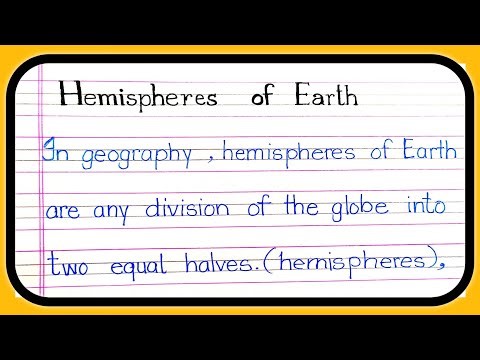 Hemispheres of Earth
In geography, hemispheres of Earth
are any division of the globe into
two equal halves.(hemispheres),